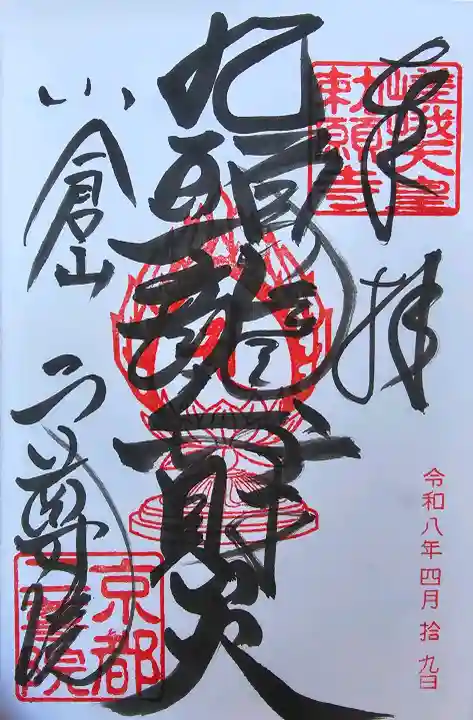 奉拝
嵯峨天皇
勅願寺
令和八年四月拾九日
九頭龍弁財天
小倉山 二尊院
京都
二尊院